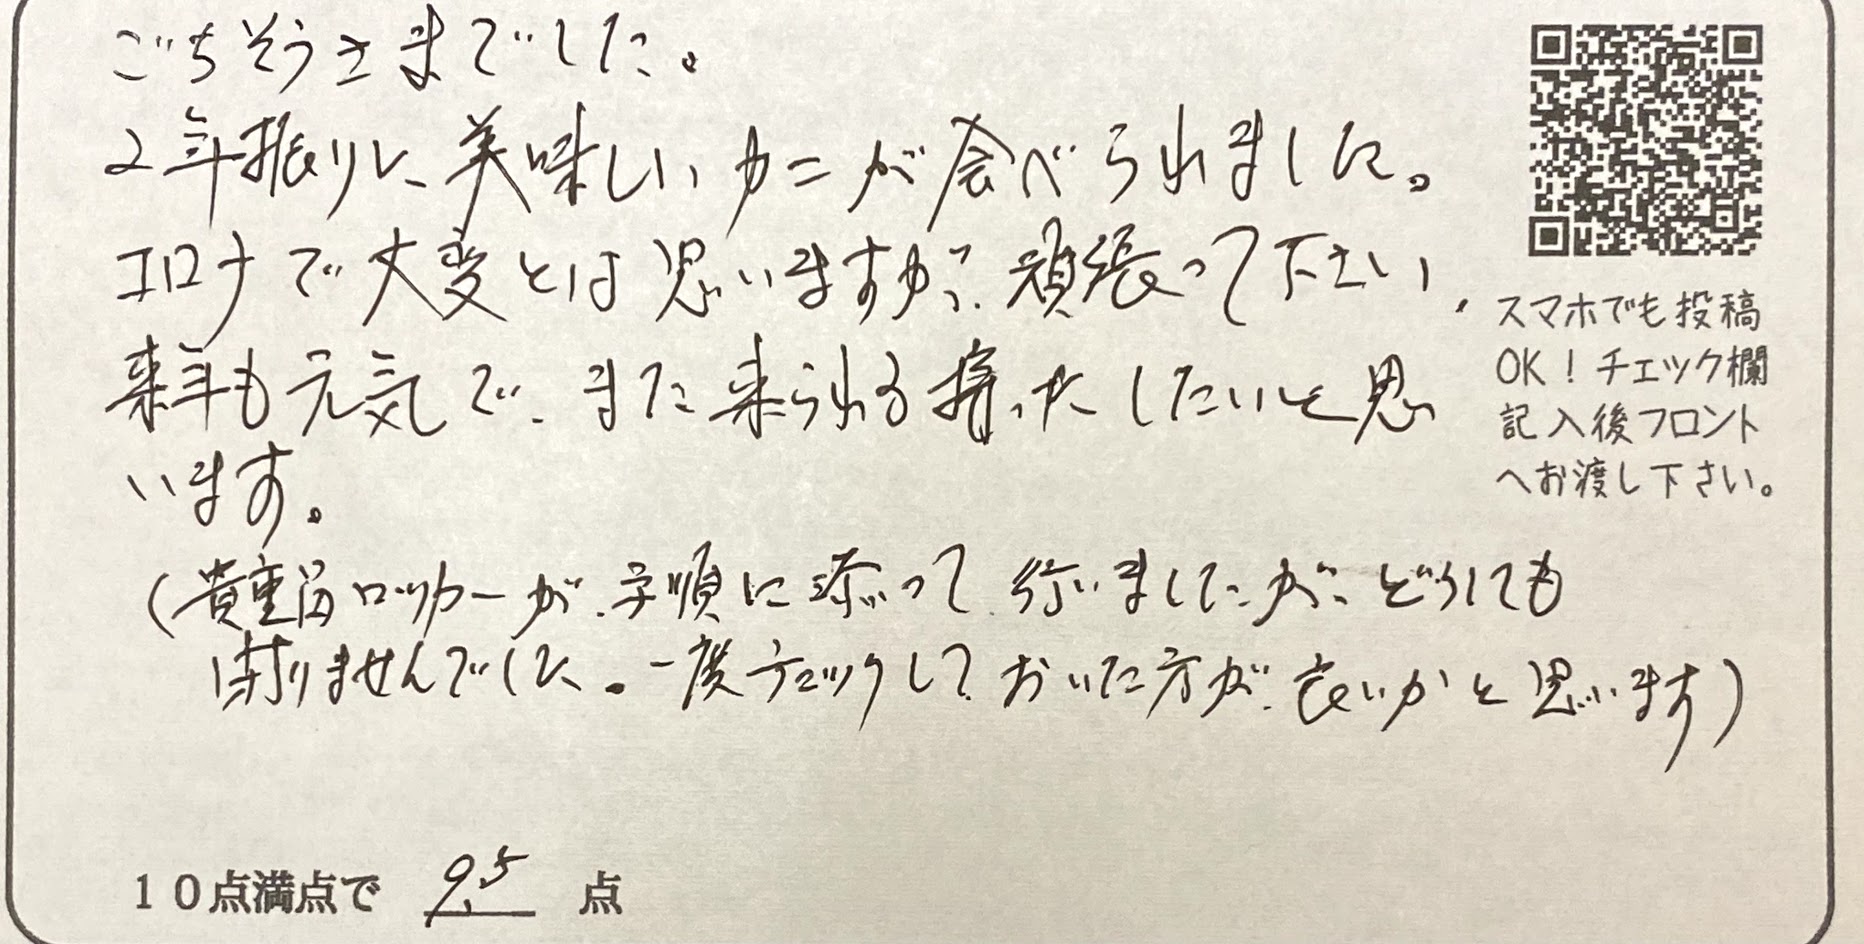 ごちそうさまでした。
2年振りに、美味しいカニが食べられました。
コロナで大変とは思いますが、頑張って下さい。
来年も元気で、また来られる様にしたいと思
います。
(貴重品ロッカーが、手順に添って行いましたが、どうしても
閉りませんでした。一度チェックしておいた方が、良いかと思います)
スマホでも投稿
OK!チェック欄
記入後フロント
へお渡し下さい。
10点満点で 9.5 点